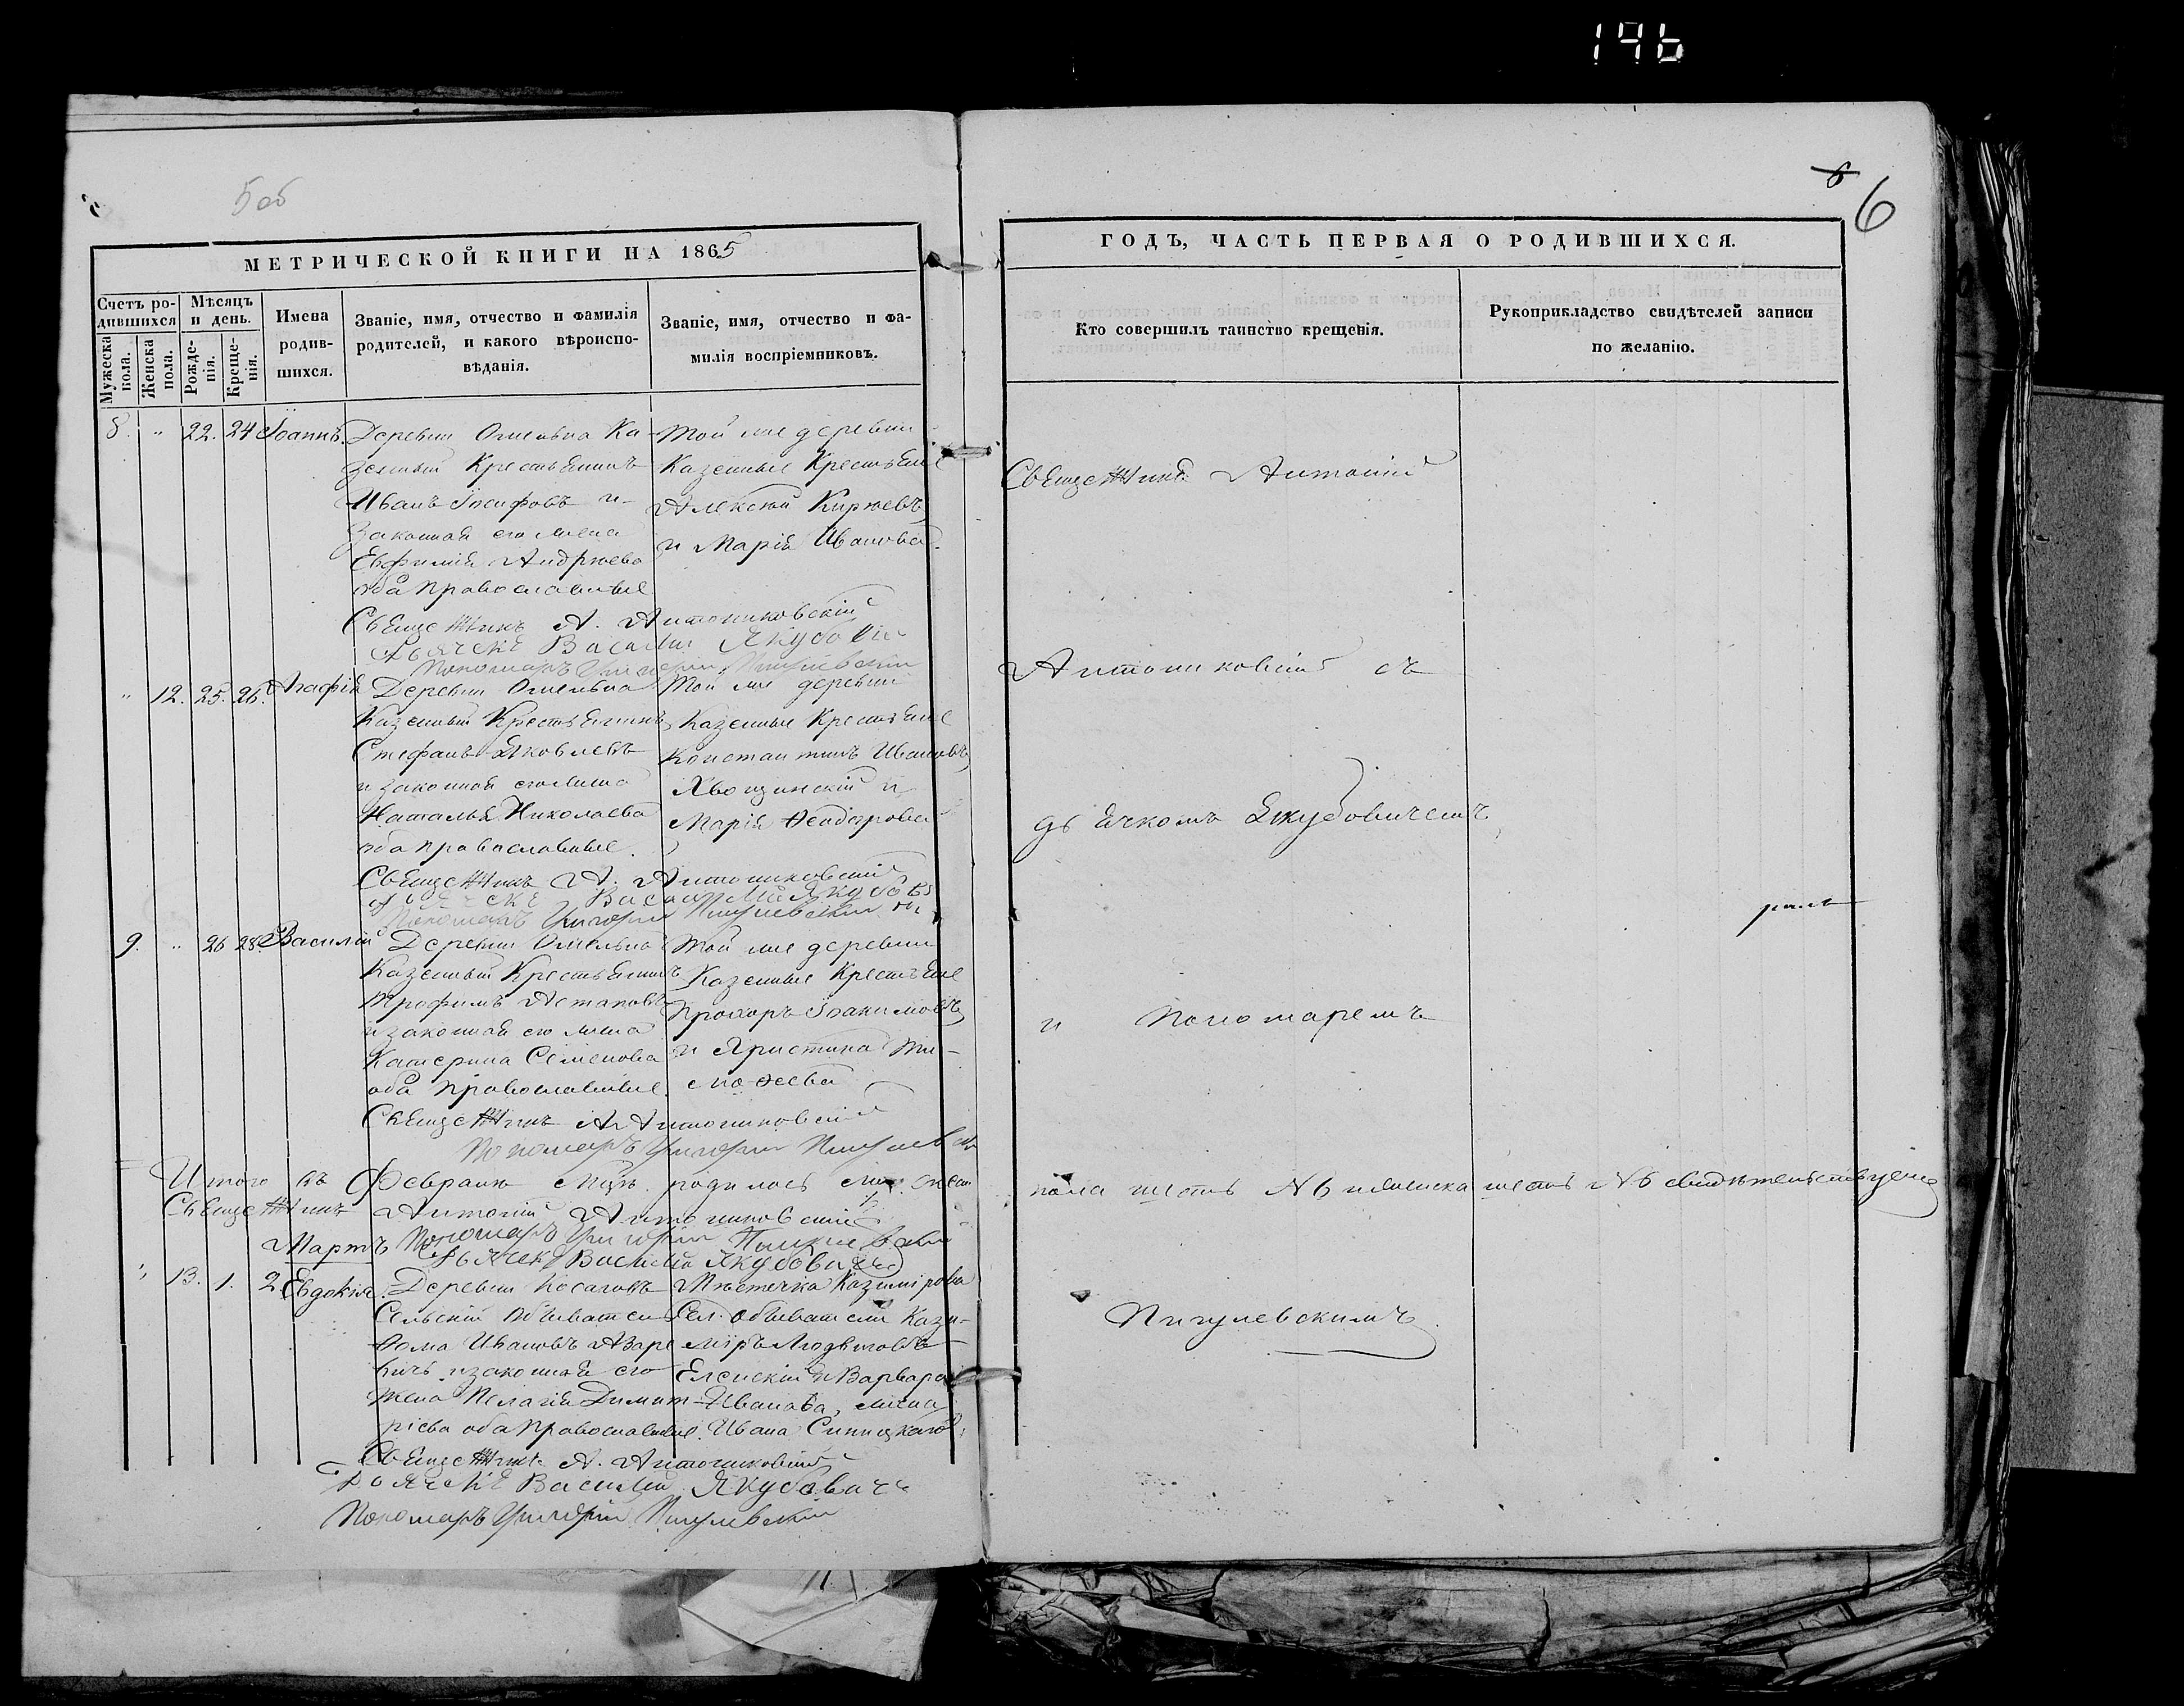 196
5 об
6
МЕТРИЧЕСКОЙ КНИГИ НА 1865
Счетъ родившихся
Мужеска пола.
Женска пола.
Мѣсяцъ и день.
Рожденія.
Крещенія.
Имена родившихся.
Званіе, имя, отчество и фамилія
родителей, и какого вѣроиспо-
вѣданія.
Званіе, имя, отчество и фа-
милія воспріемниковъ.
8. " 22. 24 Іоаннъ.
Деревни Омельна Ка-
зенный Крестьянинъ
Иванъ Іосифовъ и
Законная его жена
Евфимія Андрѣева
оба православные
Той же деревни
Казенные Крестьяне
Алексѣй Кирѣевъ
и Марія Иванова.
Священникъ А. Антониковскій
Дьячекъ Василій Якубович
Пономаръ Григорій Пигулевскій
" 12. 25. 26. Агафія
Деревни Омельна
Казенный Крестьянинъ
Стефанъ Яковлевъ
и законная его жена
Наталья Николаева
оба православные.
Той же деревни
Казенные Крестьяне
Константинъ Ивановъ
Хвощинскій и
Марія Ѳеодорова
Священникъ А. Антониковскій
Дьячекъ Василій Якубович
Пономаръ Григорій Пигулевскій
9. " 26 28. Василій
Деревни Омельна
Казенный Крестьянинъ
Трофимъ Астаповъ
и законная его жена
Катерина Семенова
оба православные.
Той же деревни
Казенные Крестьяне
Прохоръ Іоакимовъ
и Христина Ти-
моѳеева
Священникъ А Антониковскій
Пономаръ Григорій Пигулевскій
Итого въ Февралѣ Мцѣ. родилось
Священникъ Антоній Антониковскій
Пономаръ Григорій Пигулевскій
Мартъ
Дьячекъ Василій Якубовичъ
" 13. 1. 2. Евдокія.
Деревни Косаговъ
Сельскій Обыватель
Ѳома Ивановъ Азаре
вичъ и законная его
жена Пелагія Димит-
ріева оба православные.
Мѣстечка Казимірова
Сел. обыватели Кази-
міръ Людвиговъ
Еленскій и Варвара
Иванова, жена
Ивана Синицкаго
Священникъ А. Антониковскій
Дьячекъ Василій Якубовичъ
Пономаръ Григорій Пигулевскій
ГОДЪ, ЧАСТЬ ПЕРВАЯ О РОДИВШИХСЯ.
Кто совершилъ таинство крещенія.
Рукоприкладство свидѣтелей записи
по желанію.
Священникъ Антоній
Антониковскій съ
дьячкомъ Якубовичемъ
и Пономаремъ
пола шесть № 6 и женска шесть № 6 свидѣтельствуемъ
Пигулевскимъ.